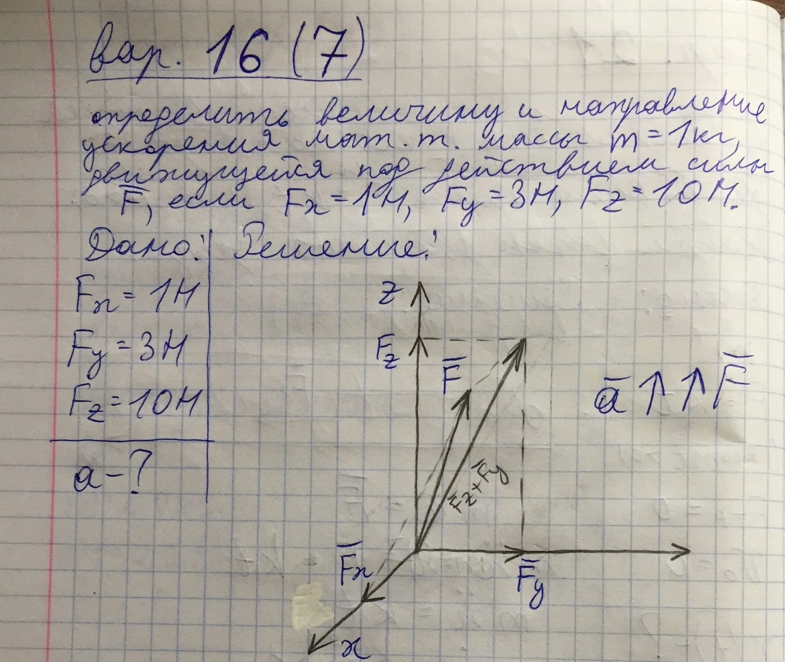 вар. 16 (7)
определить величину и направление
ускорения мат. т. массы m = 1кг,
движущейся под действием силы
F̅, если Fx = 1Н, Fy = 3Н, Fz = 10Н.
Дано: Решение:
Fx = 1Н
Fy = 3Н
Fz = 10Н
a - ?
z
Fz
F̅
F̅z + F̅y
a̅ ↑↑ F̅
F̅x
F̅y
x